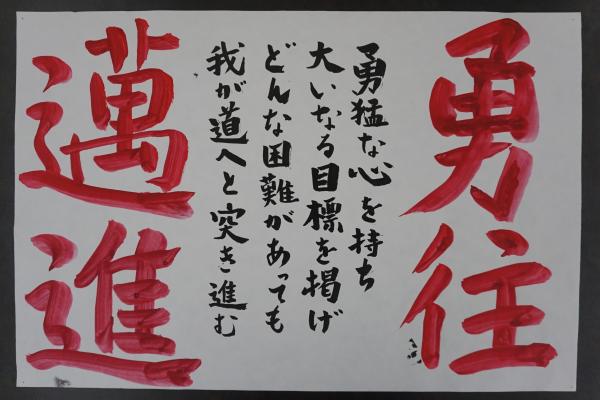 勇往
勇猛な心を持ち
大いなる目標を掲げ
どんな困難があっても
我が道へと突き進む
邁進